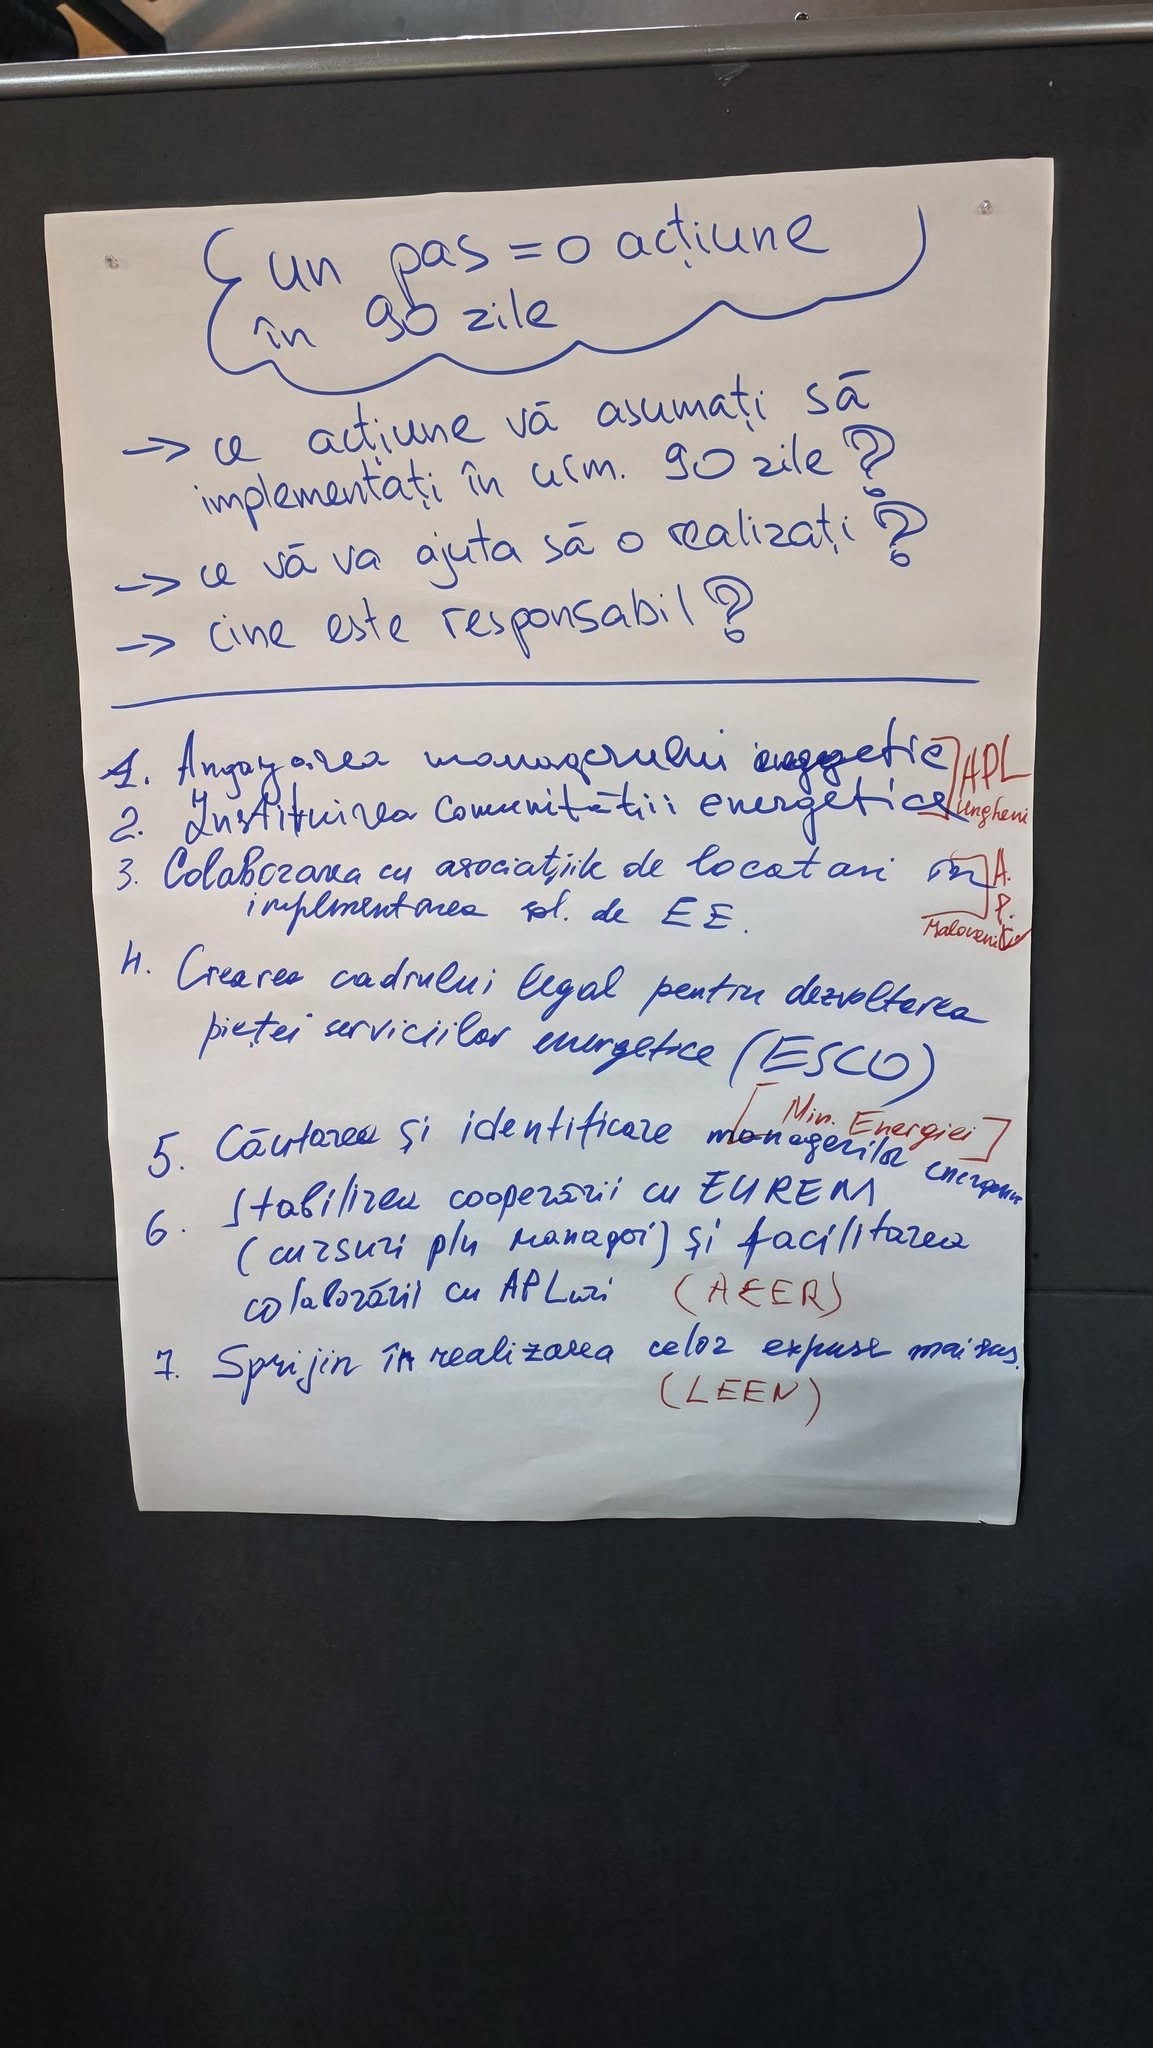 un pas = o acțiune
în 90 zile
→ ce acțiune vă asumați să
implementați în urm. 90 zile?
→ ce vă va ajuta să o realizați?
→ cine este responsabil?
1. Angajarea managerului energetic
APL
2. Instituirea comunității energetice
Ungheni
3. Colaborarea cu asociațiile de locatari în
A.
implementarea sol. de EE.
P.
4. Crearea cadrului legal pentru dezvoltarea
pieței serviciilor energetice (ESCO)
[Min. Energiei]
5. Căutarea și identificare managerilor
6. Stabilirea cooperării cu EUREM
(cursuri p/u manageri) și facilitarea
colaborării cu APLuri (AEER)
7. Sprijin în realizarea celor expuse mai sus.
(LEEN)